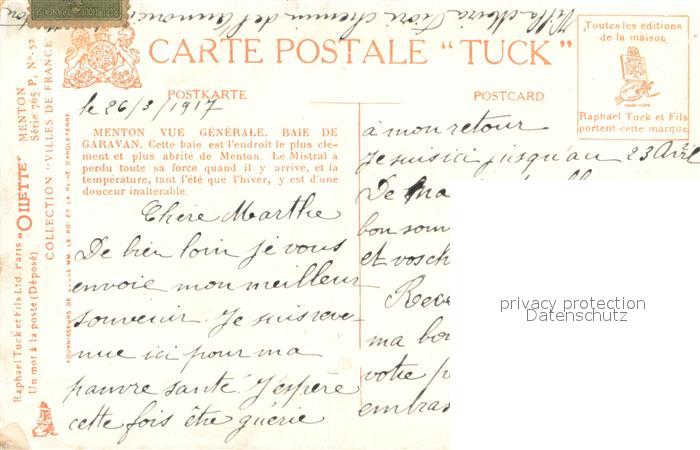 Villa Maria Fiori chemin de
CARTE POSTALE "TUCK"
Toutes les éditions
de la maison
Raphael Tuck et Fils
portent cette marque
POSTKARTE
POSTCARD
le 26/3/1917
MENTON VUE GÉNÉRALE. BAIE DE
GARAVAN. Cette baie est l'endroit le plus clé-
ment et plus abrite de Menton. Le Mistral a
perdu toute sa force quand il y arrive, et la
température, tant l'été que l'hiver, y est d'une
douceur inalterable.
Chère Marthe
De bien loin je vous
envoie mon meilleur
souvenir. Je suis reve-
nue ici pour ma
pauvre santé. J'espère
cette fois être guérie
à mon retour
Je suis ici jusqu'au 23 Avril
De ma
bon sou
et vos ch
Reve
ma bo
votre
embras
Raphael Tuck et Fils Ltd. Paris "OILETTE" MENTON
Un mot à la poste (Déposé) Série 765 P, No-52
COLLECTION "VILLES DE FRANCE"
FOURNISSEURS DE LEURS MM. LE ROI ET LA REINE D'ANGLETERRE
privacy protection
Datenschutz